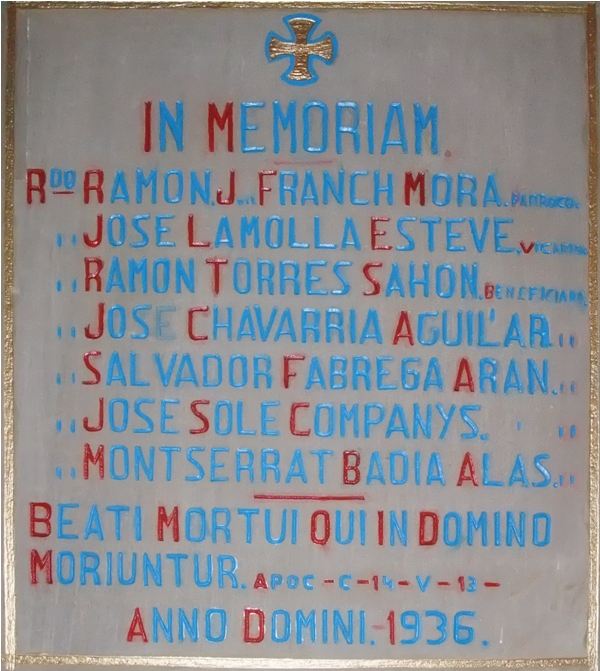 IN MEMORIAM.
RDO RAMON. J. FRANCH MORA. PARROCO.
,, JOSE LAMOLLA ESTEVE. VICARIO.
,, RAMON TORRES SAHON. BENEFICIADO.
,, JOSE CHAVARRIA AGUILAR. ,,
,, SALVADOR FABREGA ARAN. ,,
,, JOSE SOLE COMPANYS. ,,
,, MONTSERRAT BADIA ALAS. ,,
BEATI MORTUI QUI IN DOMINO
MORIUNTUR. APOC - C - 14 - V - 13 -
ANNO DOMINI. - 1936.